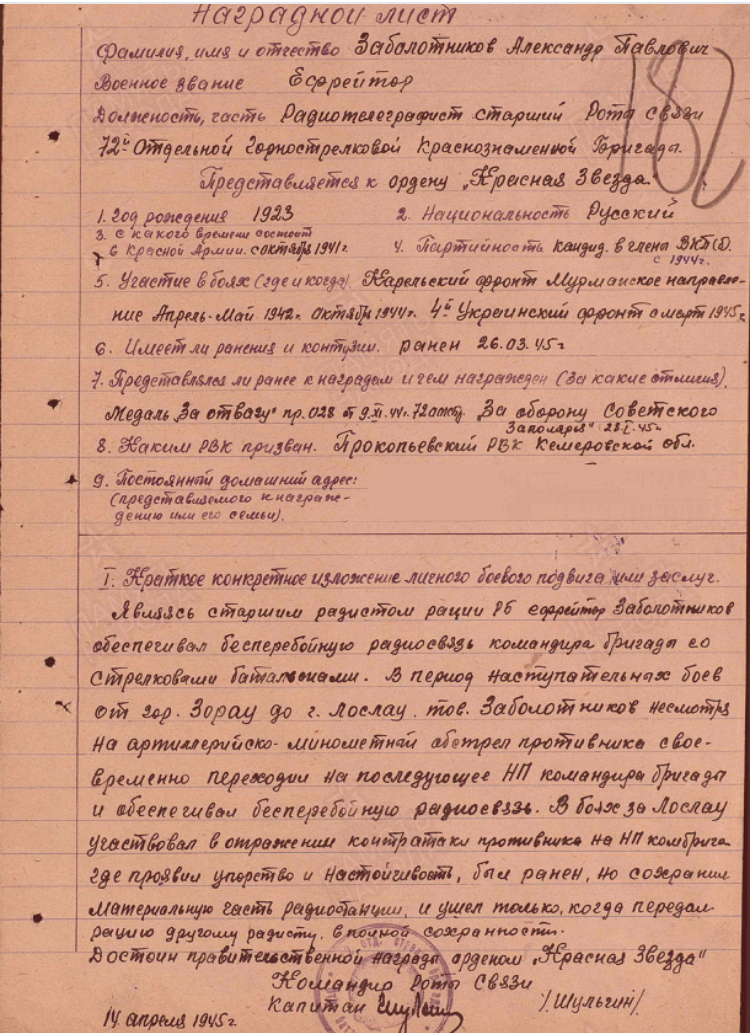 Наградной лист
Фамилия, имя и отчество Заболотников Александр Павлович
Военное звание Ефрейтор
Должность, часть Радиотелеграфист старший Рота связи
72й Отдельной Горнострелковой Краснознаменной Бригады.
182
Представляется к ордену „Красная Звезда"
1. год рождения 1923
2. Национальность Русский
3. с какого времени состоит
в Красной Армии. с октября 1941г
4. Партийность кандид. в члены ВКП(б)
с 1944г.
5. Участие в боях (где и когда) Карельский фронт Мурманское направле-
ние Апрель-Май 1942г. октябрь 1944г. 4й Украинский фронт с март 1945г
6. Имеет ли ранения и контузии. ранен 26.03.45г
7. Представлялся ли ранее к наградам и чем награжден (за какие отличия)
Медаль „За отвагу" пр. 028 от 9.XI.44г. „За оборону Советского
Заполярья" 28.I.45г.
8. Каким РВК призван. Прокопьевский РВК Кемеровской обл.
9. Постоянный домашний адрес:
(представляемого к награж-
дению или его семьи).
I. Краткое конкретное изложение личного боевого подвига или заслуг.
Являясь старшим радистом рации РБ ефрейтор Заболотников
обеспечивал бесперебойную радиосвязь командира бригады со
стрелковыми батальонами. В период наступательных боев
от гор. Зорау до г. Лослау. тов. Заболотников несмотря
на артиллерийско-минометный обстрел противника свое-
временно переходил на последующее НП командира бригады
и обеспечивал бесперебойную радиосвязь. В боях за Лослау
участвовал в отражении контратаки противника на НП комбрига
где проявил упорство и настойчивость, был ранен, но сохранил
материальную часть радиостанции, и ушел только, когда передал
рацию другому радисту, в полной сохранности.
Достоин правительственной награды орденом „Красная Звезда"
Командир Роты Связи
Капитан /Шульгин/
14 апреля 1945г.